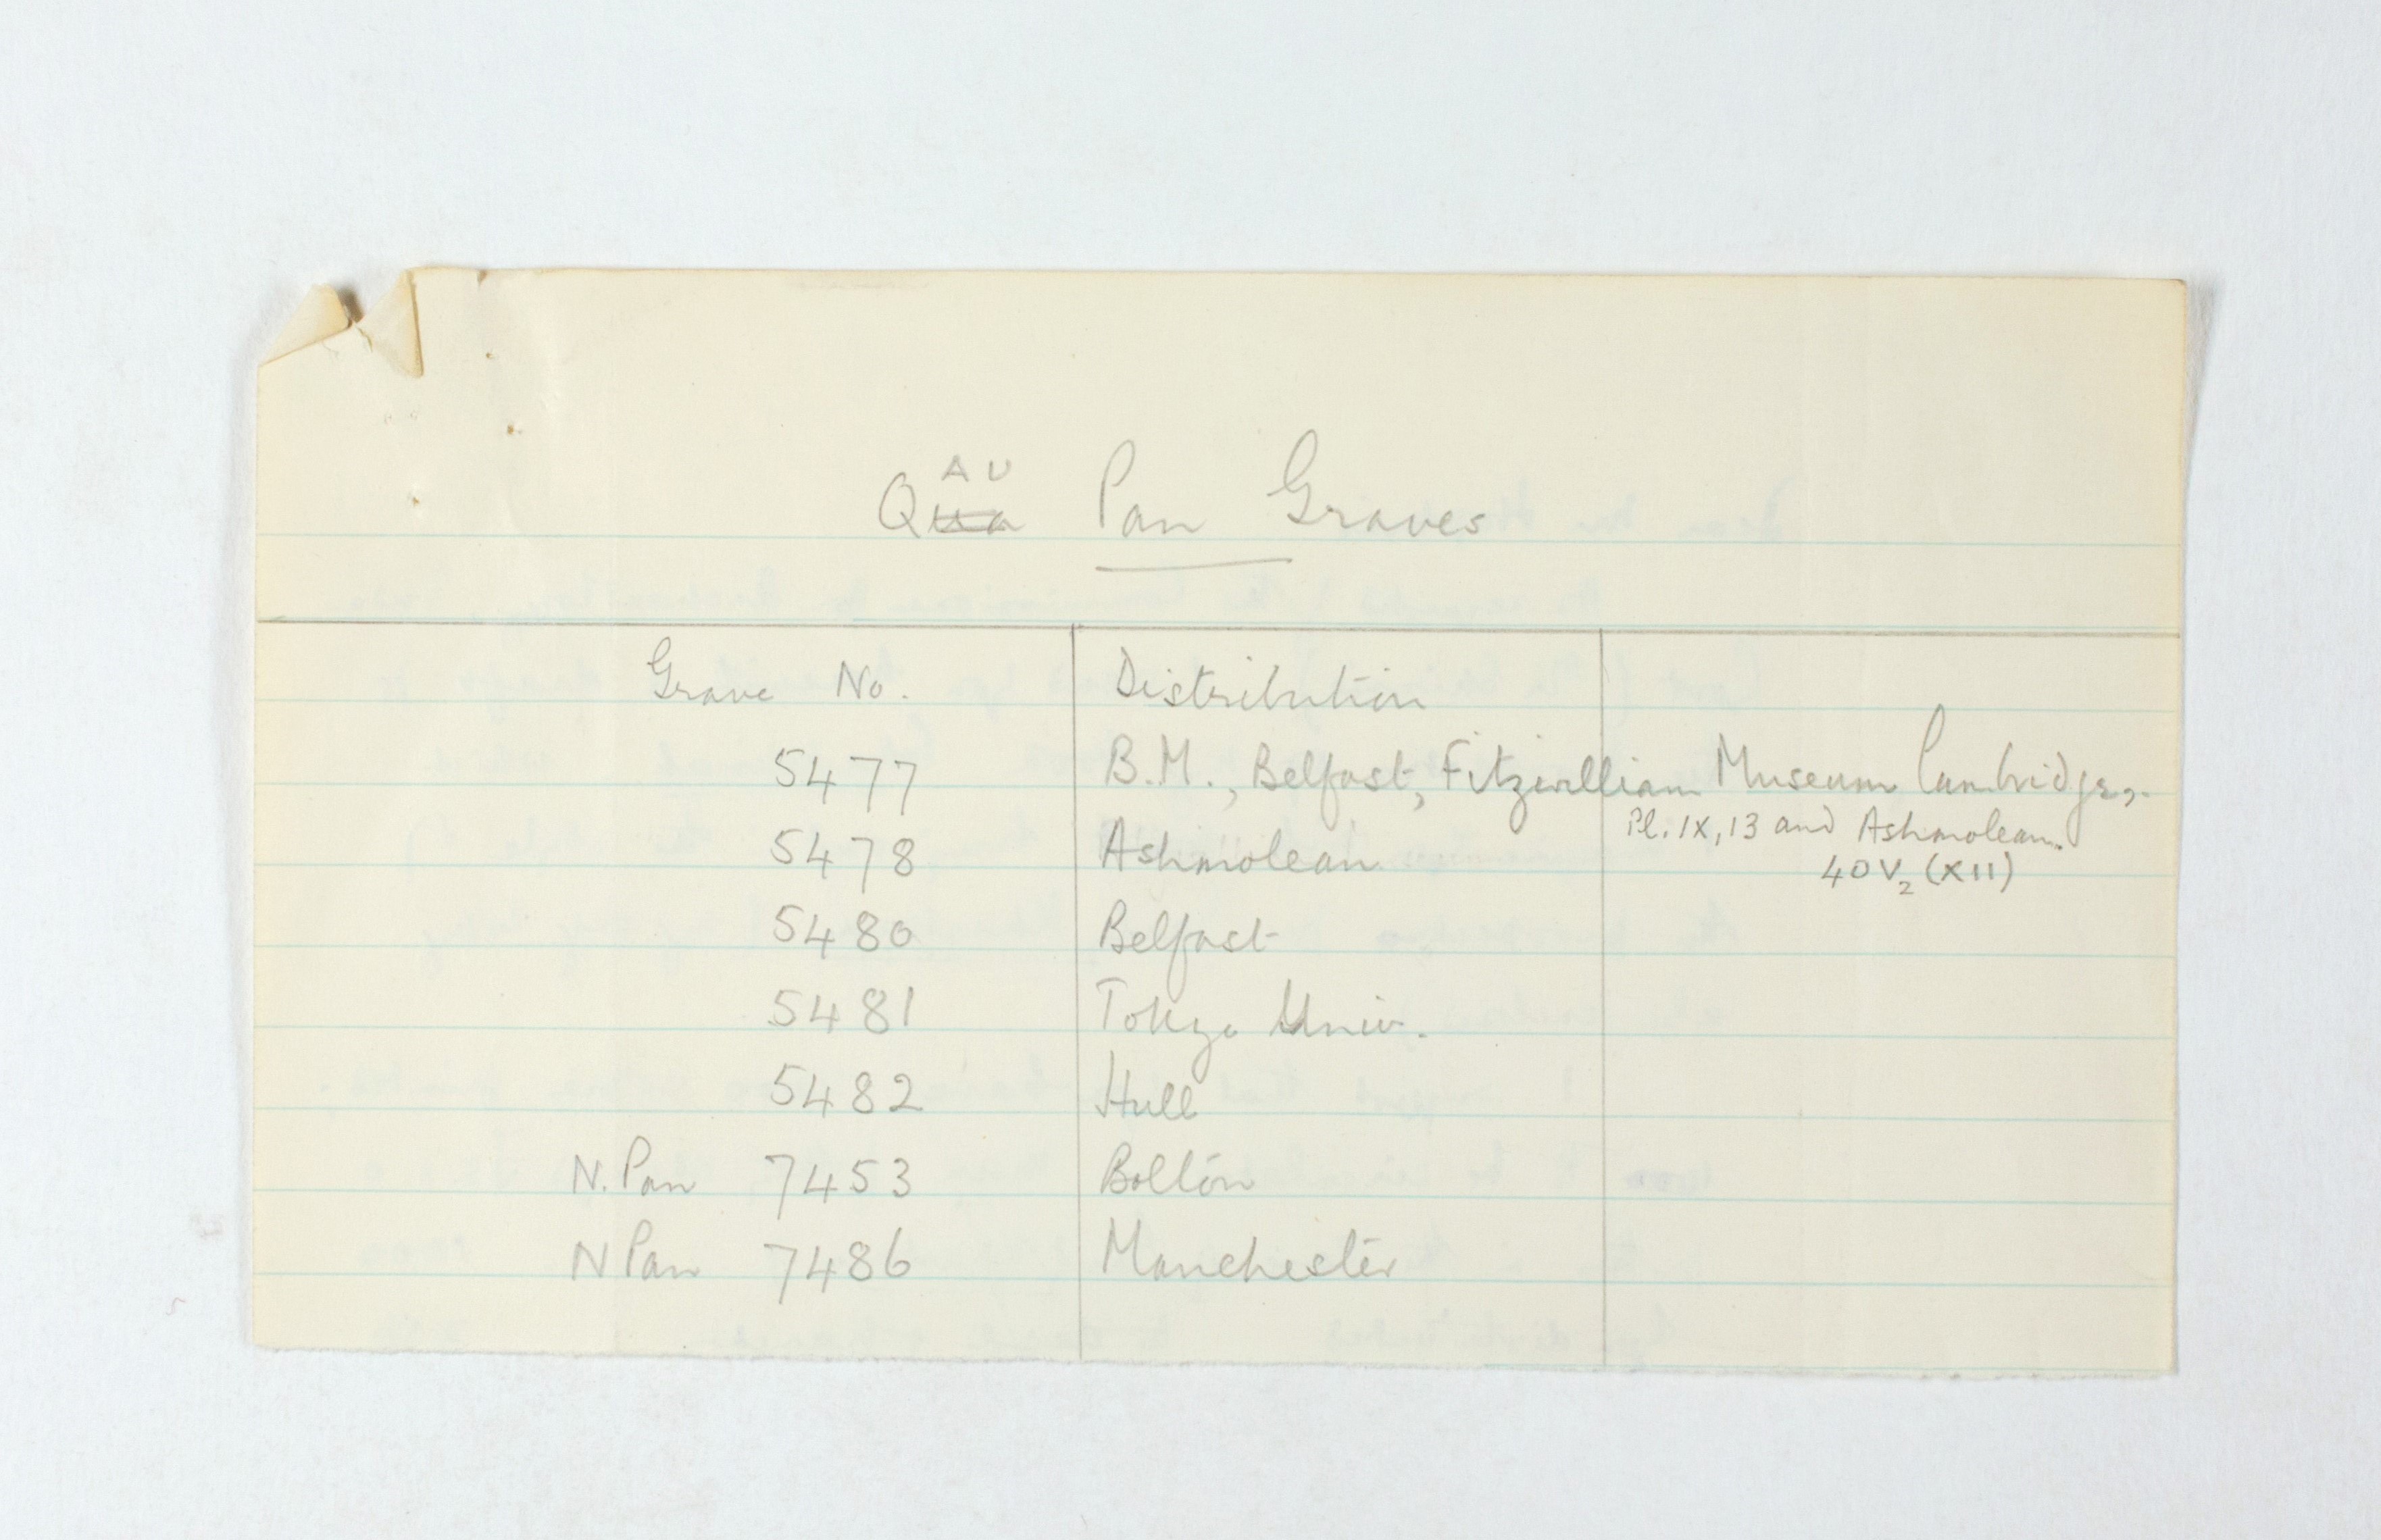 QAU Pan Graves
Grave No. Distribution
5477 B.M., Belfast, Fitzwilliam Museum Cambridge,
Pl. IX, 13 and Ashmolean.
5478 Ashmolean
40V2 (XII)
5480 Belfast
5481 Tokyo Univ.
5482 Hull
N. Pan 7453 Bolton
N Pan 7486 Manchester